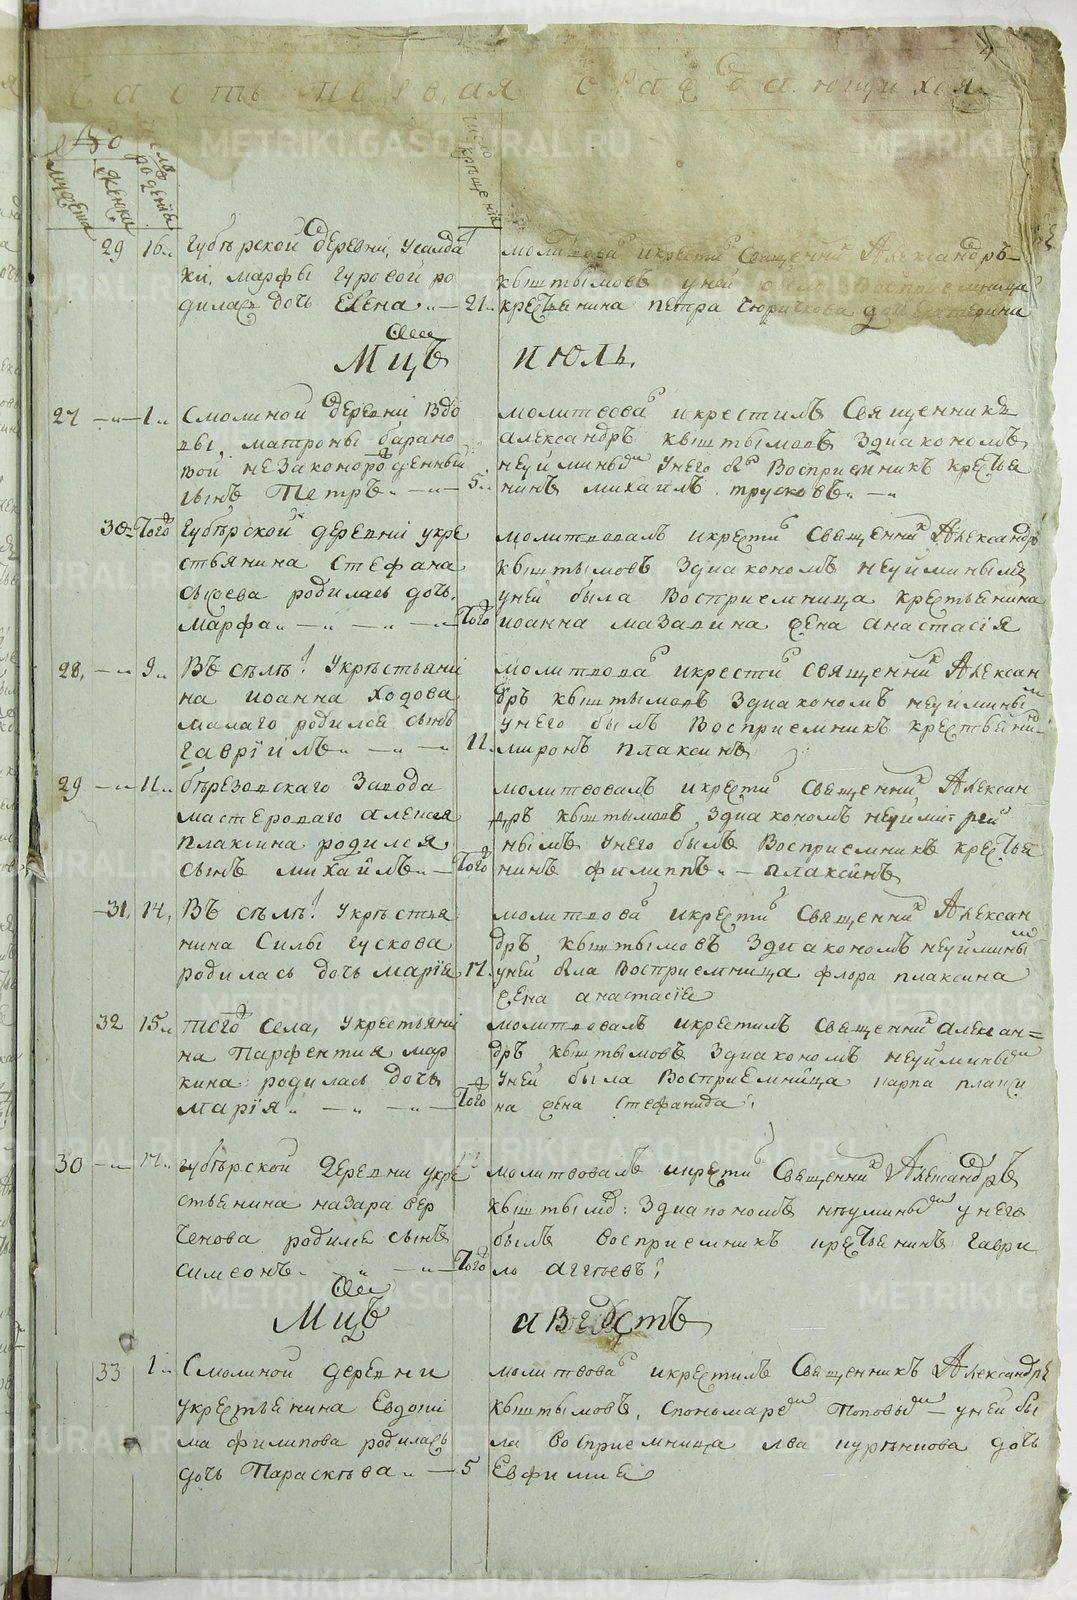 часть первая о раждающихся
мужеска
женска
число рождения
число крещения
29 16 Губерской деревни, Усалда
ки, марфы гуровой ро
дилас дочь Елена 21
молитвова и крести Священник Александръ
кыштымовъ у ней восприемница
крестьянина петра
Мцъ июль.
27 1 Смолиной деревни вдо
вы, матроны барано
вой незаконорожденный
сынъ Петръ 5
молитвова и крестилъ Священникъ
александръ кыштымовъ здиакономъ
неуйминым у него бы Восприемникъ крестья
нинъ михаилъ трусковъ
30 Того Губерской деревни укре
стьянина стефана
сысоева родилась дочь
марфа Того
молитвовалъ и крести Священник Александръ
кыштымовъ здиакономъ неуйминымъ
уней была Восприемница крестьянина
иоанна мазавина жена анастасія
28 9 Въ селѣ укрестьяни
на иоанна ходова
малаго родился сынъ
гаврїилъ 11
молитвова и крести священник Алексан
дръ кыштымовъ здиакономъ неуймины
унего былъ Восприемникъ крестьянин
миронъ плаксинъ
29 11 березовскаго завода
мастероваго алексея
плаксина родился
сынъ михаилъ Того
молитвовалъ и крести священник Алексан
дръ кыштымовъ здиакономъ неуйми
нымъ унего былъ Восприемникъ крестья
нинъ филиппъ плаксинъ
31 14 Въ селѣ укрестья
нина Силы гускова
родилась дочь марїя 17
молитвова и крести священник Алексан
дръ кыштымовъ здиакономъ неуймины
уней была Восприемница флора плаксина
жена анастасїя
32 15 того села, укрестьяни
на Парфентия мар
кина родилась дочь
марїя Того
молитвовалъ и крестилъ священник алексан
дръ кыштымовъ здиакономъ неуйминым
уней была Восприемница карпа плакси
на жена стефанида
30 17 губерской деревни укре
стьянина назара вер
ченова родился сынъ
симеонъ Того
молитвовалъ и крести Священник Александръ
кыштымо здиакономъ неуминым у него
былъ восприемникъ крестьянинъ гаври
лъ аггѣевъ
Мцъ августъ
33 1 Смолиной деревни
укрестьянина Евдоки
ма филипова родилась
дочь Параскѣва 5
молитвова и крестилъ Священникъ Александръ
кыштымовъ, спономарем Поповым уней бы
ла восприемница лва дочь
Евфимия